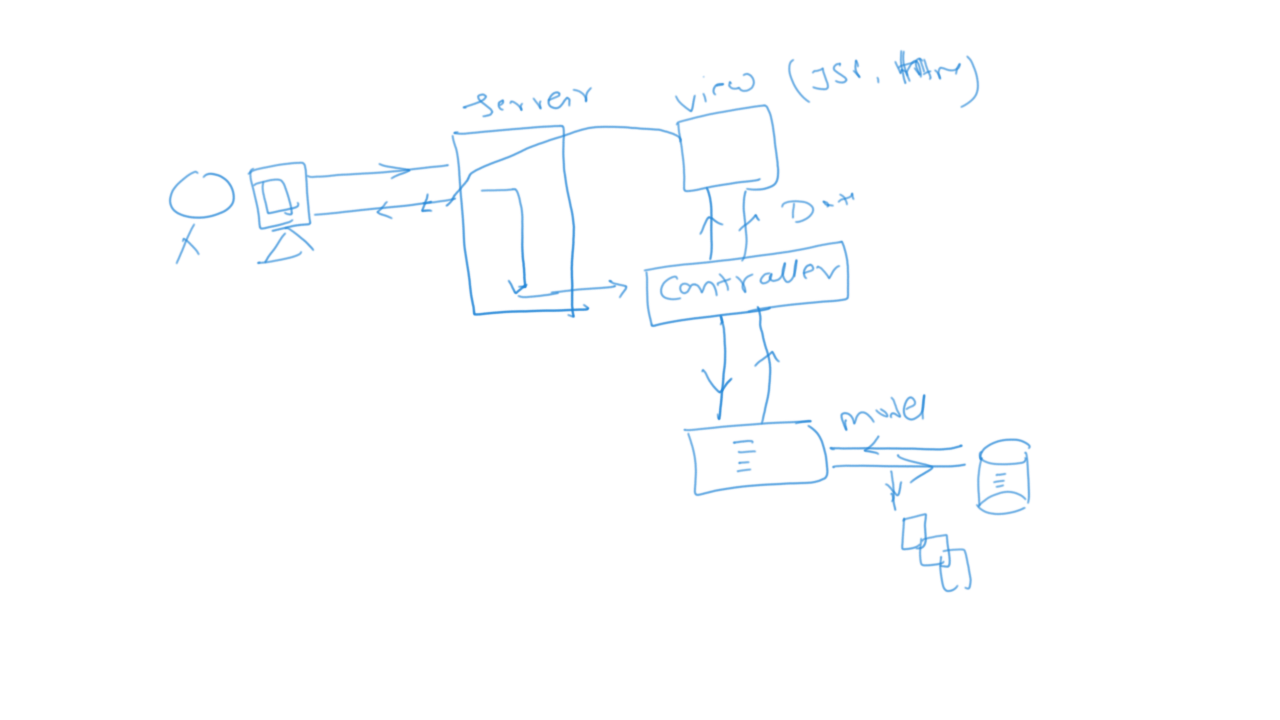 Server
View (JSP,
Data
Controller
model